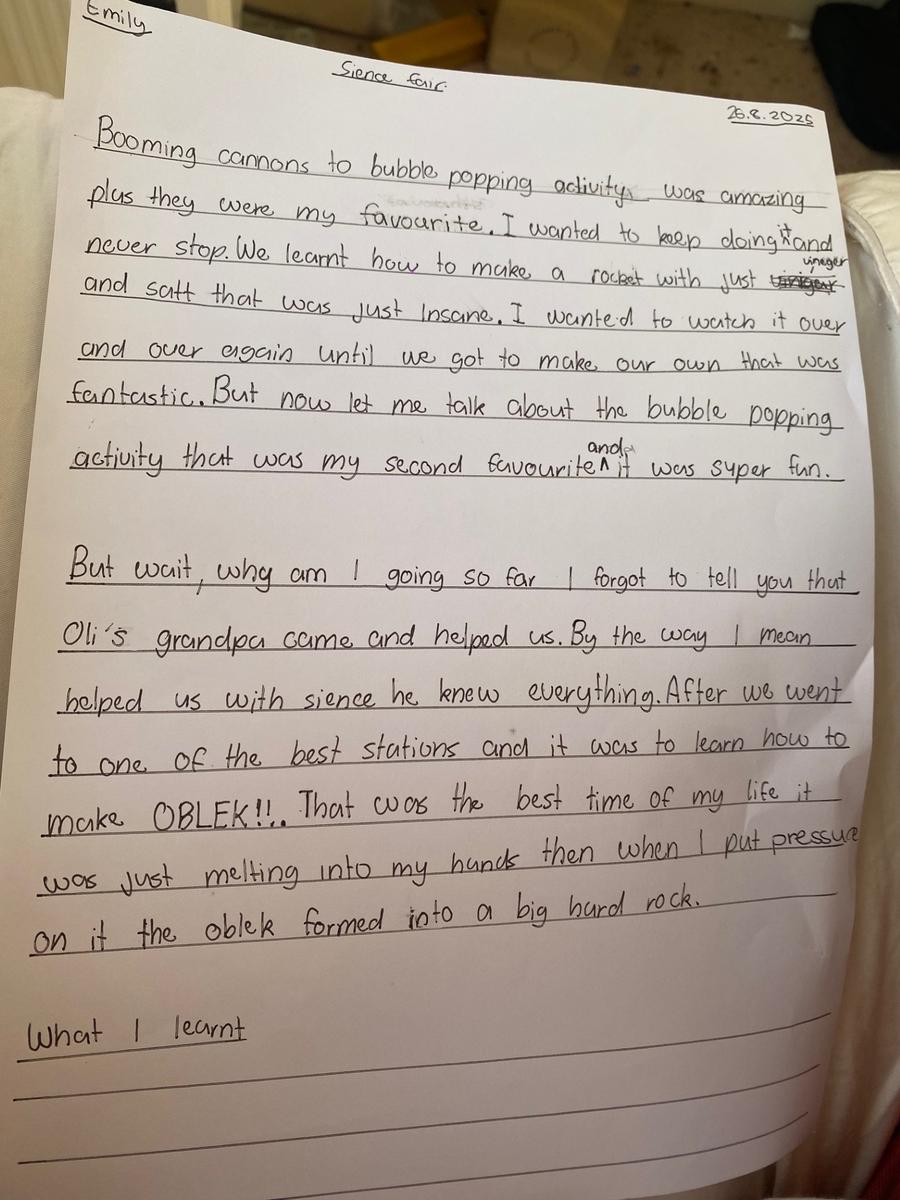 Emily
Sience fair.
26.8.2025
Booming cannons to bubble popping activity was amazing
plus they were my favourite. I wanted to keep doing it and
never stop. We learnt how to make a rocket with just vineger
and satt that was just Insane. I wanted to watch it over
and over again until we got to make our own that was
fantastic. But now let me talk about the bubble popping
activity that was my second favourite and it was super fun.
But wait, why am I going so far I forgot to tell you that
Oli's grandpa came and helped us. By the way I mean
helped us with sience he knew everything. After we went
to one of the best stations and it was to learn how to
make OBLEK!!. That was the best time of my life it
was just melting into my hands then when I put pressure
on it the oblek formed into a big hard rock.
What I learnt